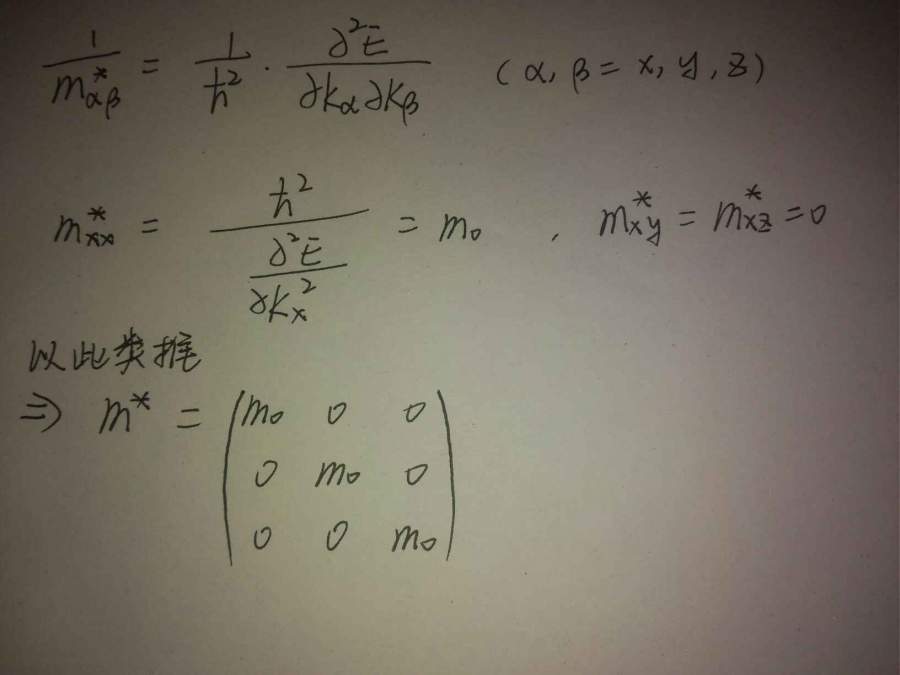 1/m*_{αβ} = 1/ħ² · ∂²E/∂k_α∂k_β (α, β = x, y, z)
m*_{xx} = ħ²/(∂²E/∂k_x²) = m₀ , m*_{xy} = m*_{xz} = 0
以此类推
⇒ m* = (m₀ 0 0
0 m₀ 0
0 0 m₀)